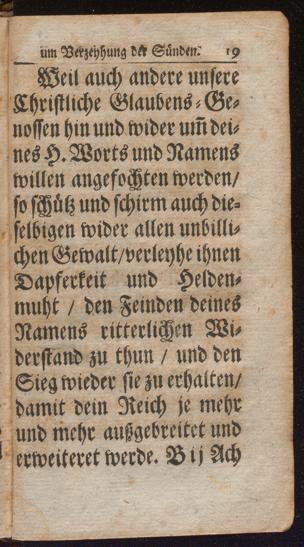 um Verzeyhung der Sünden. 19
Weil auch andere unsere
Christliche Glaubens-Ge-
nossen hin und wider um̃ dei-
nes H. Worts und Namens
willen angefochten werden/
so schütz und schirm auch die-
selbigen wider allen unbilli-
chen Gewalt/verleyhe ihnen
Dapferkeit und Helden-
muht / den Feinden deines
Namens ritterlichen Wi-
derstand zu thun / und den
Sieg wieder sie zu erhalten/
damit dein Reich je mehr
und mehr außgebreitet und
erweiteret werde. B ij Ach